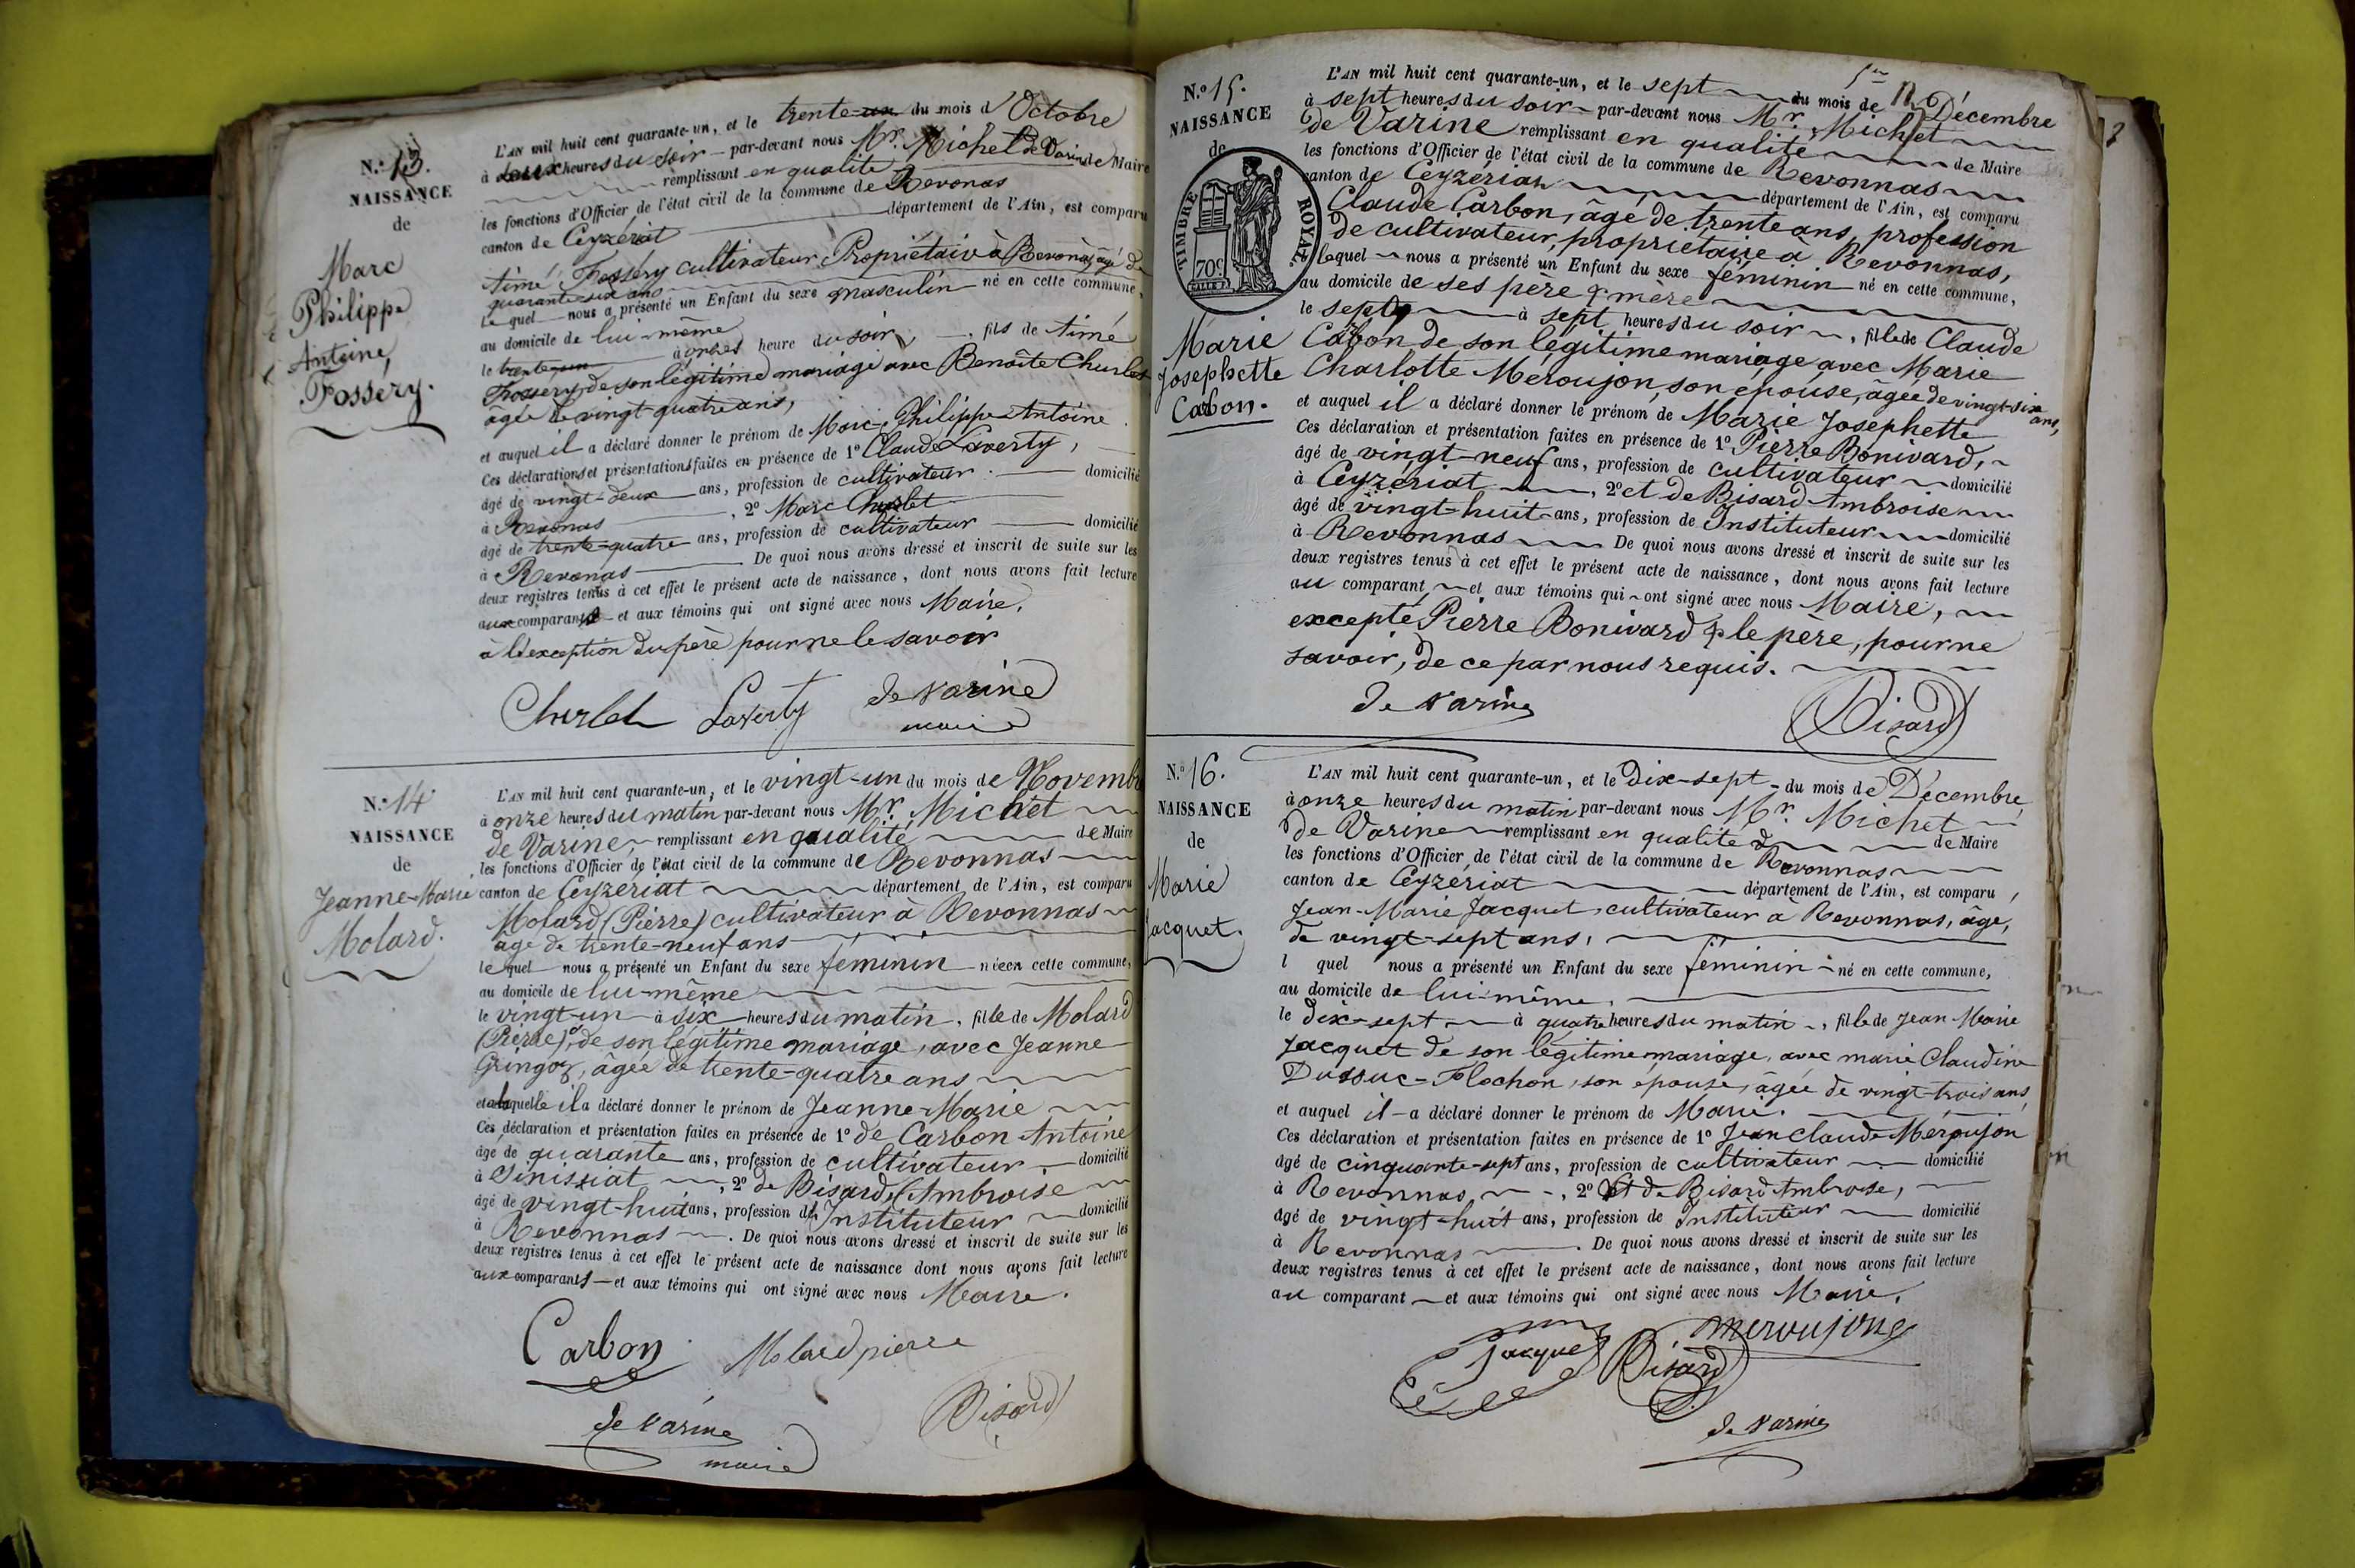 N.° 13.
NAISSANCE
de
Marc
Philippe
Antoine,
Fossery.
L'AN mil huit cent quarante-un, et le trente-un du mois d'Octobre
à deux heures du soir par-devant nous Mr. Michet de Varine de Maire
remplissant en qualité
les fonctions d'Officier de l'état civil de la commune de Revonas
canton de Ceyzériat département de l'Ain, est comparu
timé Fossery cultivateur Propriétaire à Revonas, âgé de
quarante-six ans
le quel nous a présenté un Enfant du sexe masculin né en cette commune,
au domicile de lui-même
le trente-un à onze heure du soir, fils de timé
Fossery, de son légitime mariage avec Benoîte Churlet
âgée de vingt-quatre ans,
et auquel il a déclaré donner le prénom de Marc-Philippe-Antoine
Ces déclarations et présentations faites en présence de 1° Claude Laverty,
âgé de vingt-deux ans, profession de cultivateur domicilié
à Revonas, 2° Marc Churlet
âgé de trente-quatre ans, profession de cultivateur domicilié
à Revonas De quoi nous avons dressé et inscrit de suite sur les
deux registres tenus à cet effet le présent acte de naissance, dont nous avons fait lecture
aux comparants et aux témoins qui ont signé avec nous Maire.
à l'exception du père pour ne le savoir
Churlet Laverty de Varine
maire
N.° 14
NAISSANCE
de
Jeanne-Marie
Molard.
L'AN mil huit cent quarante-un, et le vingt-un du mois de Novembre
à onze heures du matin par-devant nous Mr. Michet
de Varine, remplissant en qualité de Maire
les fonctions d'Officier de l'état civil de la commune de Revonnas
canton de Ceyzériat département de l'Ain, est comparu
Molard (Pierre) cultivateur à Revonnas
âgé de trente-neuf ans
le quel nous a présenté un Enfant du sexe féminin née en cette commune,
au domicile de lui-même
le vingt-un à dix heures du matin, fille de Molard
(Pierre), de son légitime mariage, avec Jeanne
Gringoz, âgée de trente-quatre ans
et à laquelle il a déclaré donner le prénom de Jeanne-Marie
Ces déclaration et présentation faites en présence de 1° de Carbon Antoine
âgé de quarante ans, profession de cultivateur domicilié
à Sinissiat, 2° de Bisard (Ambroise
âgé de vingt-huit ans, profession d'Instituteur domicilié
à Revonnas. De quoi nous avons dressé et inscrit de suite sur les
deux registres tenus à cet effet le présent acte de naissance dont nous avons fait lecture
aux comparants et aux témoins qui ont signé avec nous Maire.
Carbon Molard pierre
de Varine Bisard
maire
N.° 15.
NAISSANCE
de
TIMBRE ROYAL.
70c
Marie
Josephette
Carbon.
L'AN mil huit cent quarante-un, et le sept du mois de Décembre
à sept heures du soir par-devant nous Mr. Michet
de Varine remplissant en qualité de Maire
les fonctions d'Officier de l'état civil de la commune de Revonnas
canton de Ceyzériat département de l'Ain, est comparu
Claude Carbon, âgé de trente ans, profession
de cultivateur, propriétaire à Revonnas,
lequel nous a présenté un Enfant du sexe féminin né en cette commune,
au domicile de ses père & mère
le sept à sept heures du soir, fille de Claude
Carbon de son légitime mariage avec Marie
Charlotte Méroujon, son épouse, âgée de vingt-six ans,
et auquel il a déclaré donner le prénom de Marie Josephette
Ces déclaration et présentation faites en présence de 1° Pierre Bonivard,
âgé de vingt-neuf ans, profession de cultivateur domicilié
à Ceyzériat, 2° et de Bisard Ambroise
âgé de vingt-huit ans, profession de Instituteur domicilié
à Revonnas De quoi nous avons dressé et inscrit de suite sur les
deux registres tenus à cet effet le présent acte de naissance, dont nous avons fait lecture
au comparant et aux témoins qui ont signé avec nous Maire,
excepté Pierre Bonivard & le père, pour ne
savoir, de ce par nous requis.
de Varine Bisard
N.° 16.
NAISSANCE
de
Marie
Jacquet.
L'AN mil huit cent quarante-un, et le Dix-sept du mois de Décembre
à onze heures du matin par-devant nous Mr. Michet
de Varine remplissant en qualité de Maire
les fonctions d'Officier de l'état civil de la commune de Revonnas
canton de Ceyzériat département de l'Ain, est comparu
Jean-Marie Jacquet, cultivateur à Revonnas, âgé,
de vingt-sept ans,
l quel nous a présenté un Enfant du sexe féminin né en cette commune,
au domicile de lui-même,
le Dix-sept à quatre heures du matin, fille de Jean Marie
Jacquet de son légitime mariage, avec marie Claudine
Dussuc-Flochon, son épouse, âgée de vingt-trois ans,
et auquel il a déclaré donner le prénom de Marie.
Ces déclaration et présentation faites en présence de 1° Jean Claude Méroujon
âgé de cinquante-sept ans, profession de cultivateur domicilié
à Revonnas, 2° Et de Bisard Ambroise,
âgé de vingt-huit ans, profession de Instituteur domicilié
à Revonnas. De quoi nous avons dressé et inscrit de suite sur les
deux registres tenus à cet effet le présent acte de naissance, dont nous avons fait lecture
au comparant et aux témoins qui ont signé avec nous Maire.
Jacquet Bisard meroujone
de Varine